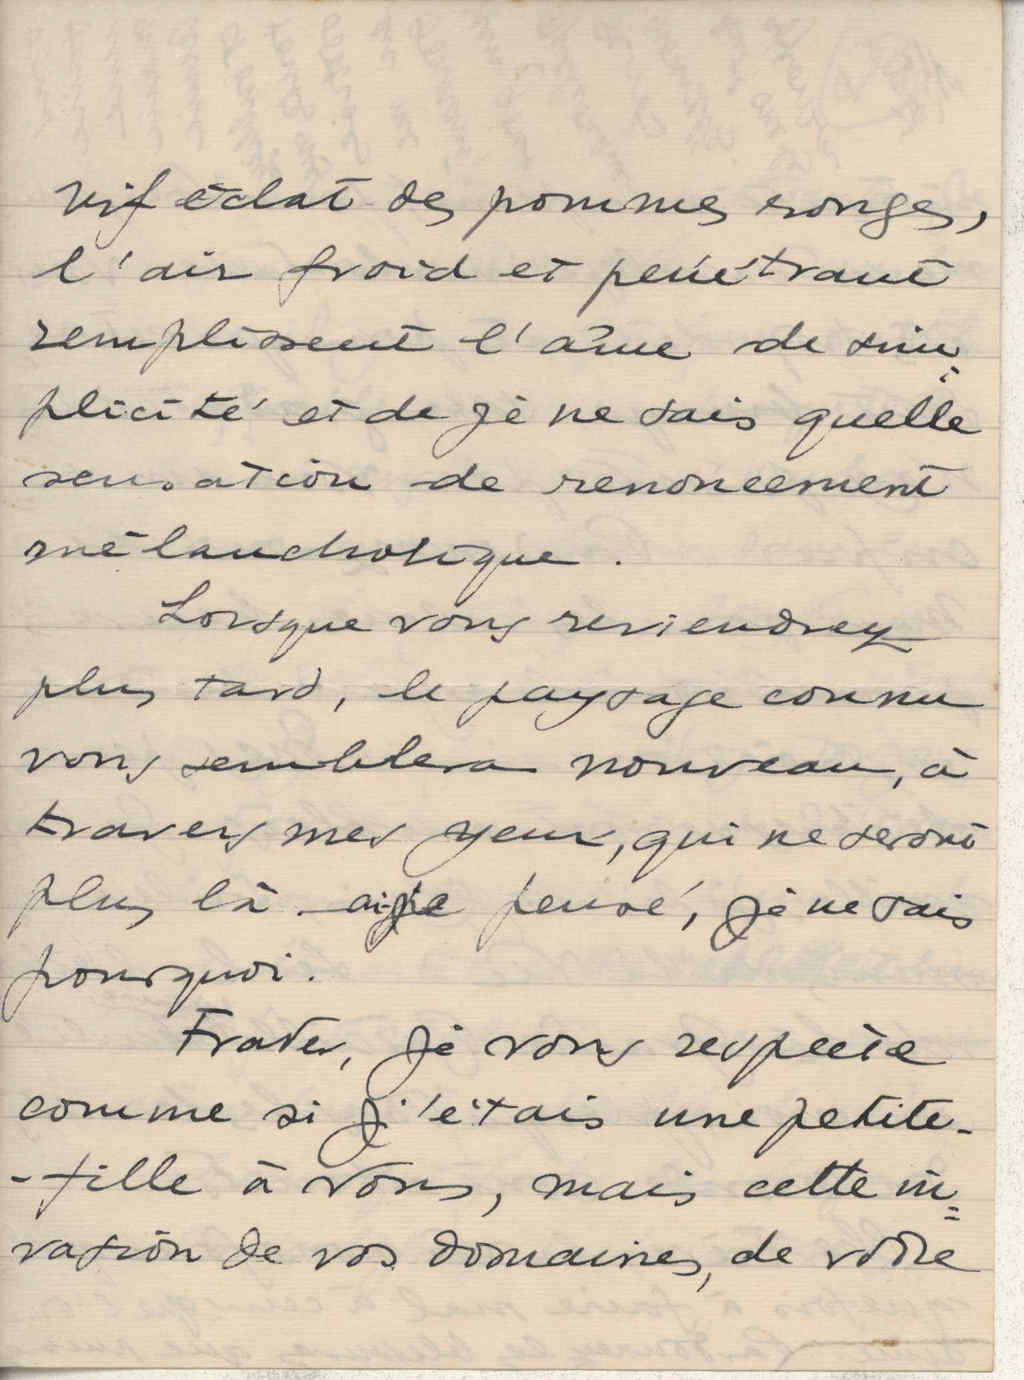 vif éclat des pommes rouges,
l'air froid et pénétrant
remplissent l'âme de sim-
plicité et de je ne sais quelle
sensation de renoncement
mélancholique.
Lorsque vous reviendrez
plus tard, le paysage connu
vous semblera nouveau, à
travers mes yeux, qui ne seront
plus là - ai-je pensé, je ne sais
pourquoi.
Frater, je vous respecte
comme si j'étais une petite-
-fille à vous, mais cette in=
vasion de vos domaines, de votre